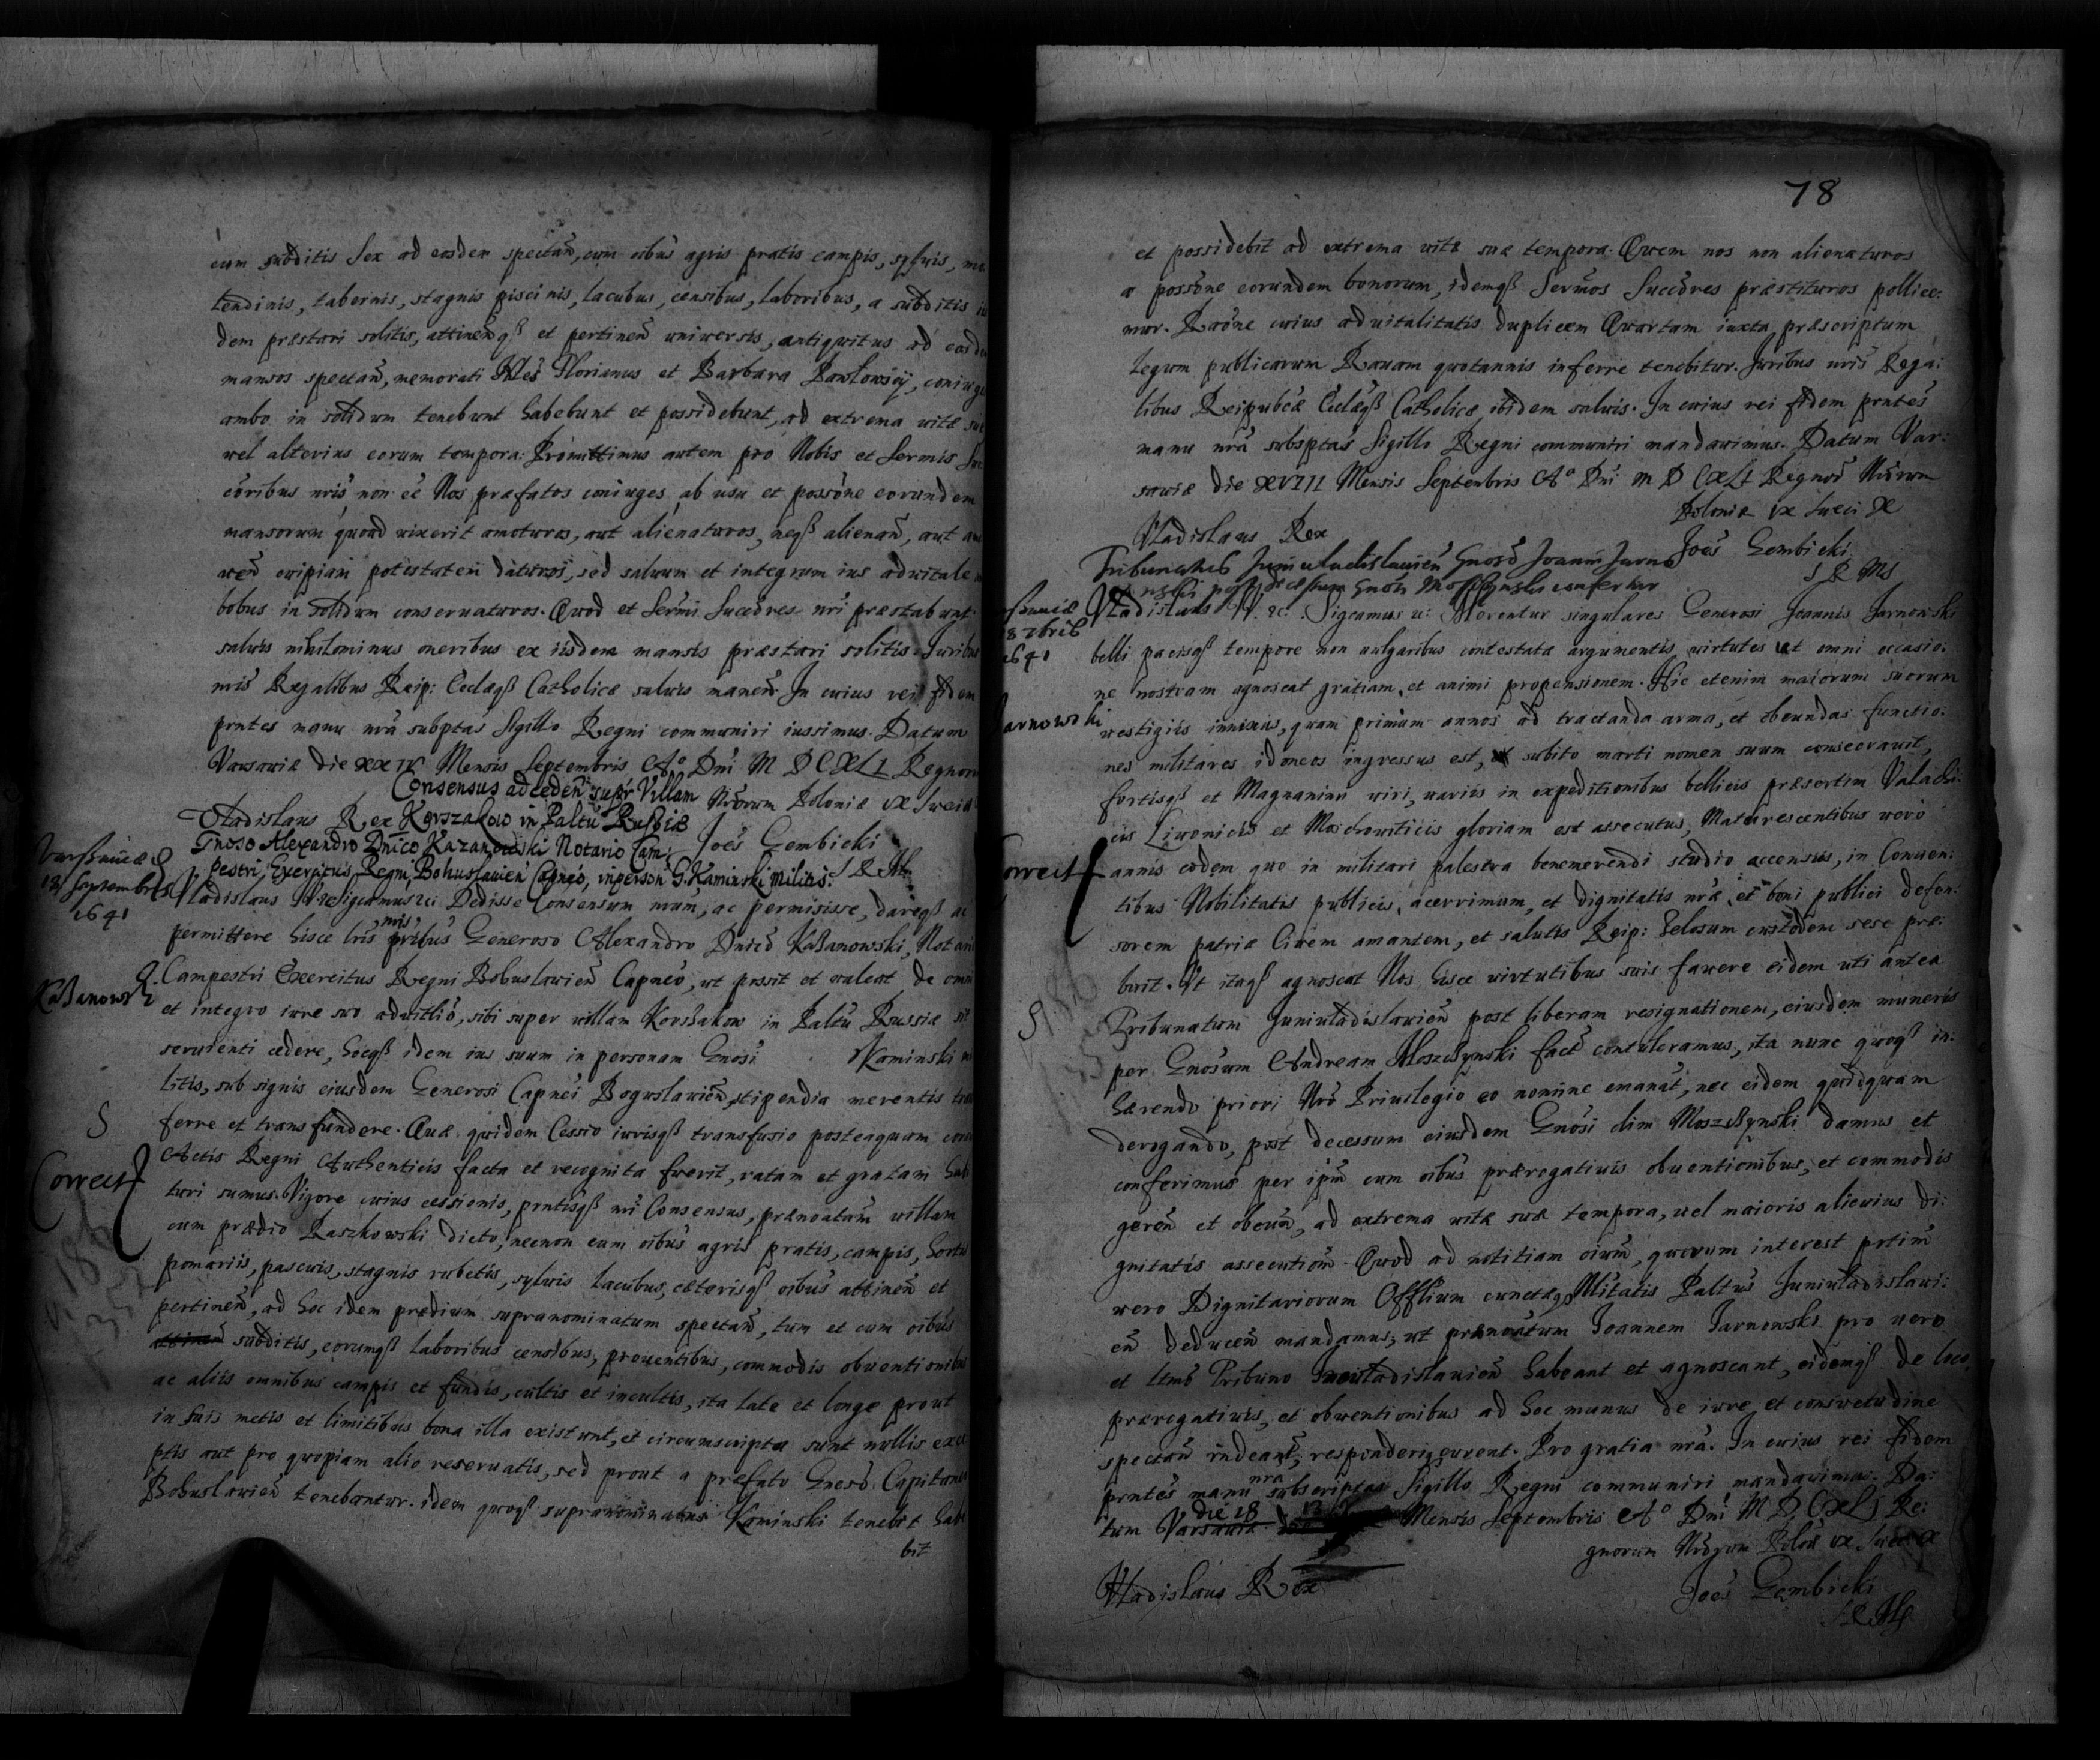 cum subditis sex ad eosdem spectañ, cum oibus agris pratis campis, syluis,
tendinis, tabernis, stagnis piscinis, lacubus, censibus, laboribus, a subditis
dem præstari solitis, attineñqß et pertineñ uniuersis, antiquitus ad eosd
mansos spectañ, memorati Florianus et Barbara Pawłowscy, coniuge
ambo in solidum tenebunt habebunt et possidebunt, ad extrema vitæ
vel alterius eorum tempora: Promittimus autem pro Nobis et Sermis Suc
coribus nris non ee Nos præfatos coniuges ab usu et possone eorundem
mansorum quoad vixerit amoturos, aut alienaturos, neqß alienañ, aut
veñ cuipiam potestatem daturos, sed saluum et integrum ius aduitale
bobus in solidum conseruaturos. Quod et Sermi Succores nri præstabunt
saluis nihilominus oneribus ex iisdem mansis præstari solitis. Iuribus
nris Regalibus Reip: Ecclæqß Catholicæ saluis maneñ. In cuius rei fidem
pntes manu nrã subptas Sigillo Regni communiri iussimus. Datum
Varsauiæ die XX IV Mensis Septembris Ao Dni M D C XL I Regnoru
Nrorum Poloniæ IX Sueciæ
Vladislaus Rex
Joes Gembicki
S R M
Consensus ad cedeñ super Villam
Korszakow in Paltu Russiæ
Gnoso Alexandro Dnico Kazanowski Notario Cam:
pestri, Exercitus Regni, Bohuslauien Capneo, in person G. Kaminski Militis.
Varsauiæ
18 Septembris
1641
Vladislaus Significamus Dedisse Consensum nrum, ac permisisse, dareqß ac
permittere hisce lris nris pntibus Generoso Alexandro Dnico Kaßanowski, Notari
Kaßanowski
Campestri Exercitus Regni Bohuslauieñ Capneo, ut possit et valeat de omni
et integro iure suo aduitlio, sibi super villam Korshakow in Paltu Russiæ
seruienti cedere, hocqß idem ius suum in personam Gnosi Kaminski
litis, sub signis eiusdem Generosi Capnei Boguslauieñ, stipendia merentis
S
ferre et transfundere. Quæ quidem Cessio iurisqß transfusio posteaquam
Actis Regni Authenticis facta et recognita fuerit, ratam et gratam
Correct
turi sumus. Vigore cuius cessionis, pntisqß nri Consensus, prænoatam villam
cum prædio Raszkowski dicto, necnon cum oibus agris pratis, campis, hortis
pomariis, pascuis, stagnis rubetis, syluis lacubus, cæterisqß oibus attineñ et
pertineñ, ad hoc idem prædium supranominatum spectañ, tum et cum oibus
subditis, eorumqß laboribus censibus, prouentibus, commodis obuentionibus
ac aliis omnibus campis et fundis, cultis et incultis, ita late et longe prout
in suis metis et limitibus bona illa existunt, et circumscripta sunt nullis exce
ptis aut pro quopiam alio reseruatis, sed prout a præfato Gneso Capitaneo
Bohuslauieñ tenebantur. idem quoqß supranominatus Kaminski tenebit habe
bit
78
et possidebit ad extrema vitæ suæ tempora. Quem nos non alienaturos
a possone eorundem bonorum, idemqß Sermos Succores præstituros pollice:
mur. Raone cuius aduitalitatis duplicem Quartam iuxta præscriptum
Legum publicarum Rauam quotannis inferre tenebitur. Iuribus nris Rega:
libus Reipubcæ Ecclæqß Catholicæ ibidem saluis. In cuius rei fidem pntes
manu nrã subsptas Sigillo Regni communiri mandauimus. Datum Var:
sauiæ die XVIII Mensis Septembris Ao Dni M D C XL I Regnor Nrorum
Poloniæ IX Sueci X
Vladislaus Rex
Joes Gembicki
S R M S
Tribunatus Juniuladislauien Gnoso Joanni Jarno
wski post decessum Gnosi Moszczynski confertur
8 7bris
1641
Vladislaus IV. Sigcamus Merentur singulares Generosi Joannis Jarnowski
belli pacisqß tempore non uulgaribus contestatæ argumentis virtutes ut omni occasio:
ne nostram agnoscat gratiam, et animi propensionem. Hic etenim maiorum suorum
Jarnowski
vestigiis innixus, quam primum annos ad tractanda arma, et obeundas functio:
nes militares idoneos ingressus est, subito marti nomen suum consecrauit,
fortisqß et Magnanimi uiri, uariis in expeditionibus bellicis præsertim Valachi
cis Liuonicis et Moschouiticis gloriam est assecutus, Maturescentibus vero
Correct
annis eodem quo in militari palestra benemerendi studio accensus, in Conuen:
tibus Nobilitatis publicis, acerrimum, et dignitatis nræ, et boni publici defen:
sorem patriæ Ciuem amantem, et salutis Reip: Zelosum custodem sese præ:
buit. Vt itaqß agnoscat Nos hisce virtutibus suis fauere eidem uti antea
S
Tribunatum Juniuladislauieñ post liberam resignationem, eiusdem muneris
per Gnosum Andream Moszczynski factã contuleramus, ita nunc quoqß in:
hærendo priori Nro Priuilegio eo nomine emanat, nec eidem quidquam
derogando, post decessum eiusdem Gnosi olim Moszczynski damus et
conferimus per ipm cum oibus prærogatiuis obuentionibus, et commodis
gereñ et obeuñ, ad extrema vitæ suæ tempora, uel maioris alicuius di:
gnitatis assecutiom. Quod ad notitiam oium, quorum interest prtim
vero Dignitariorum Offlium cunctæqß Nlitatis Paltus Juniuladislaui:
eñ deduceñ mandamus, ut prænoatum Joannem Jarnowski pro uero
et ltmo Tribuno Juniuladislauieñ habeant et agnoscant, eidemqß de loco,
prærogatiuis, et obuentionibus ad hoc munus de iure et consuetudine
spectañ rndeant, responderiqß curent. Pro gratia nrã. In cuius rei fidem
pntes manu nra subscriptas Sigillo Regni communiri mandauimus. Da:
tum Varsauiæ die 18 Mensis Septembris Ao Dni M D C XL I Re:
gnorum Nrorum Polo IX Sueci X
Vladislaus Rex
Joes Gembicki
S R M